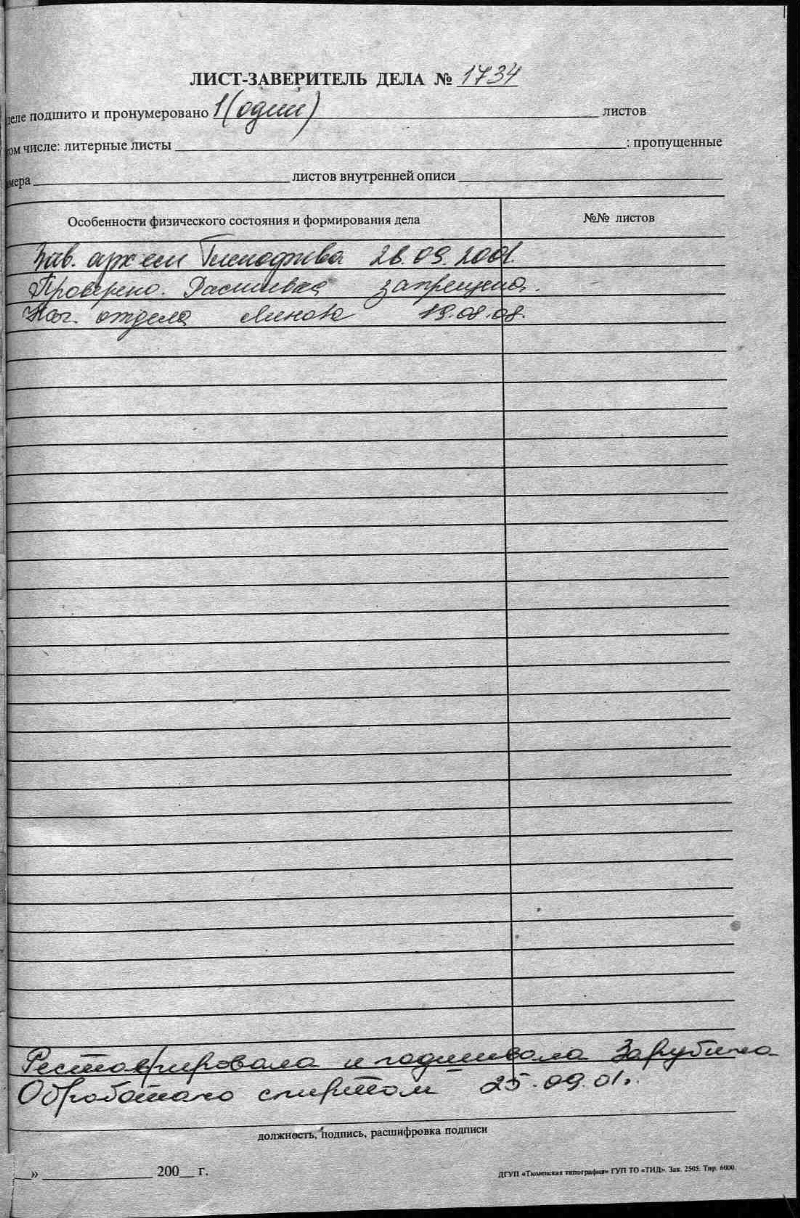 ЛИСТ-ЗАВЕРИТЕЛЬ ДЕЛА № 1734
деле подшито и пронумеровано 1 (один) листов
ом числе: литерные листы ; пропущенные
мера листов внутренней описи
Особенности физического состояния и формирования дела №№ листов
Зав. арх-ем 26.09.2001.
Проверено. Расшивка запрещена.
Нач. отдела 19.08.08.
Реставрировала и подшивала Зарубина
Обработано спиртом 25.09.01г.
должность, подпись, расшифровка подписи
» 200 г.
ДГУП «Тюменская типография» ГУП ТО «ТИД». Зак. 2505. Тир. 6000